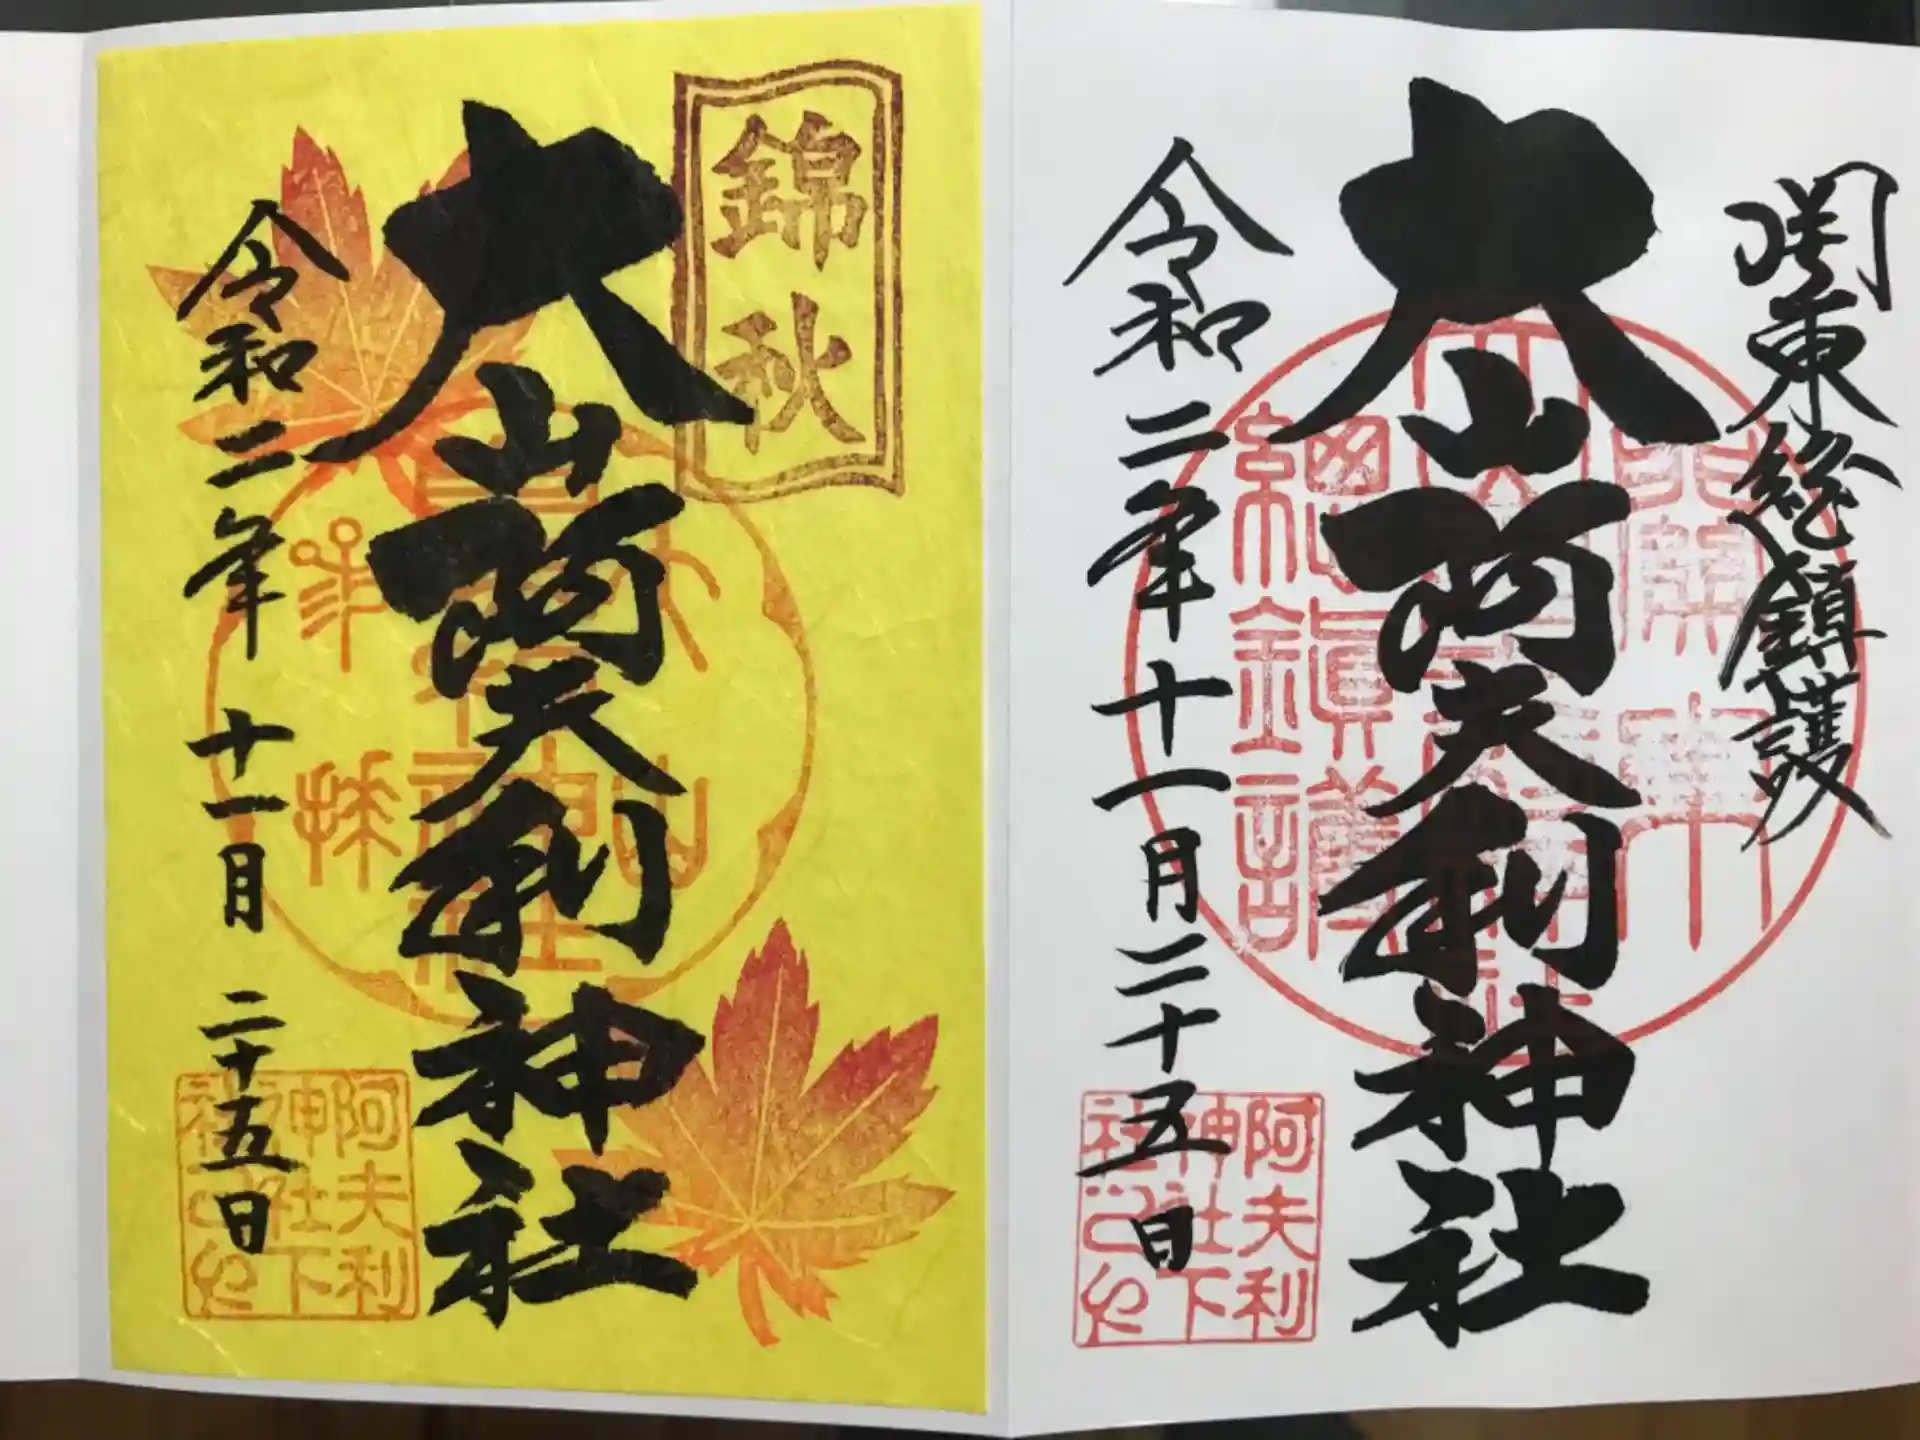 関東総鎮護
大山阿夫利神社
令和二年十一月二十五日
阿夫利
神社下
社之印
錦秋
大山阿夫利神社
令和二年十一月二十五日
阿夫利
神社下
社之印